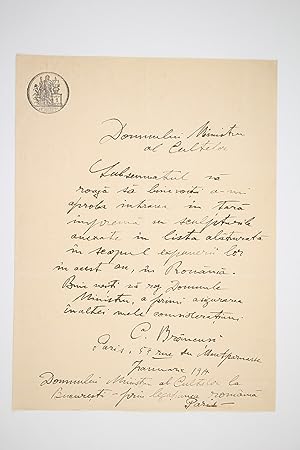 Domnului Ministru
al Cultelor
Subsemnatul vă
roagă să binevoiți a-mi
aproba intrarea în țară
împreună cu sculpturile
anexate în lista alăturată
în scopul expunerii lor
în acest an, în România.
Bine voiți vă rog Domnule
Ministru, a primi asigurarea
înaltei mele considerațiuni
C. Brâncuși
Paris, 54 rue du Montparnasse
Januarie
Domnului Ministru al Cultelor la
București – prin legațiunea română
Paris